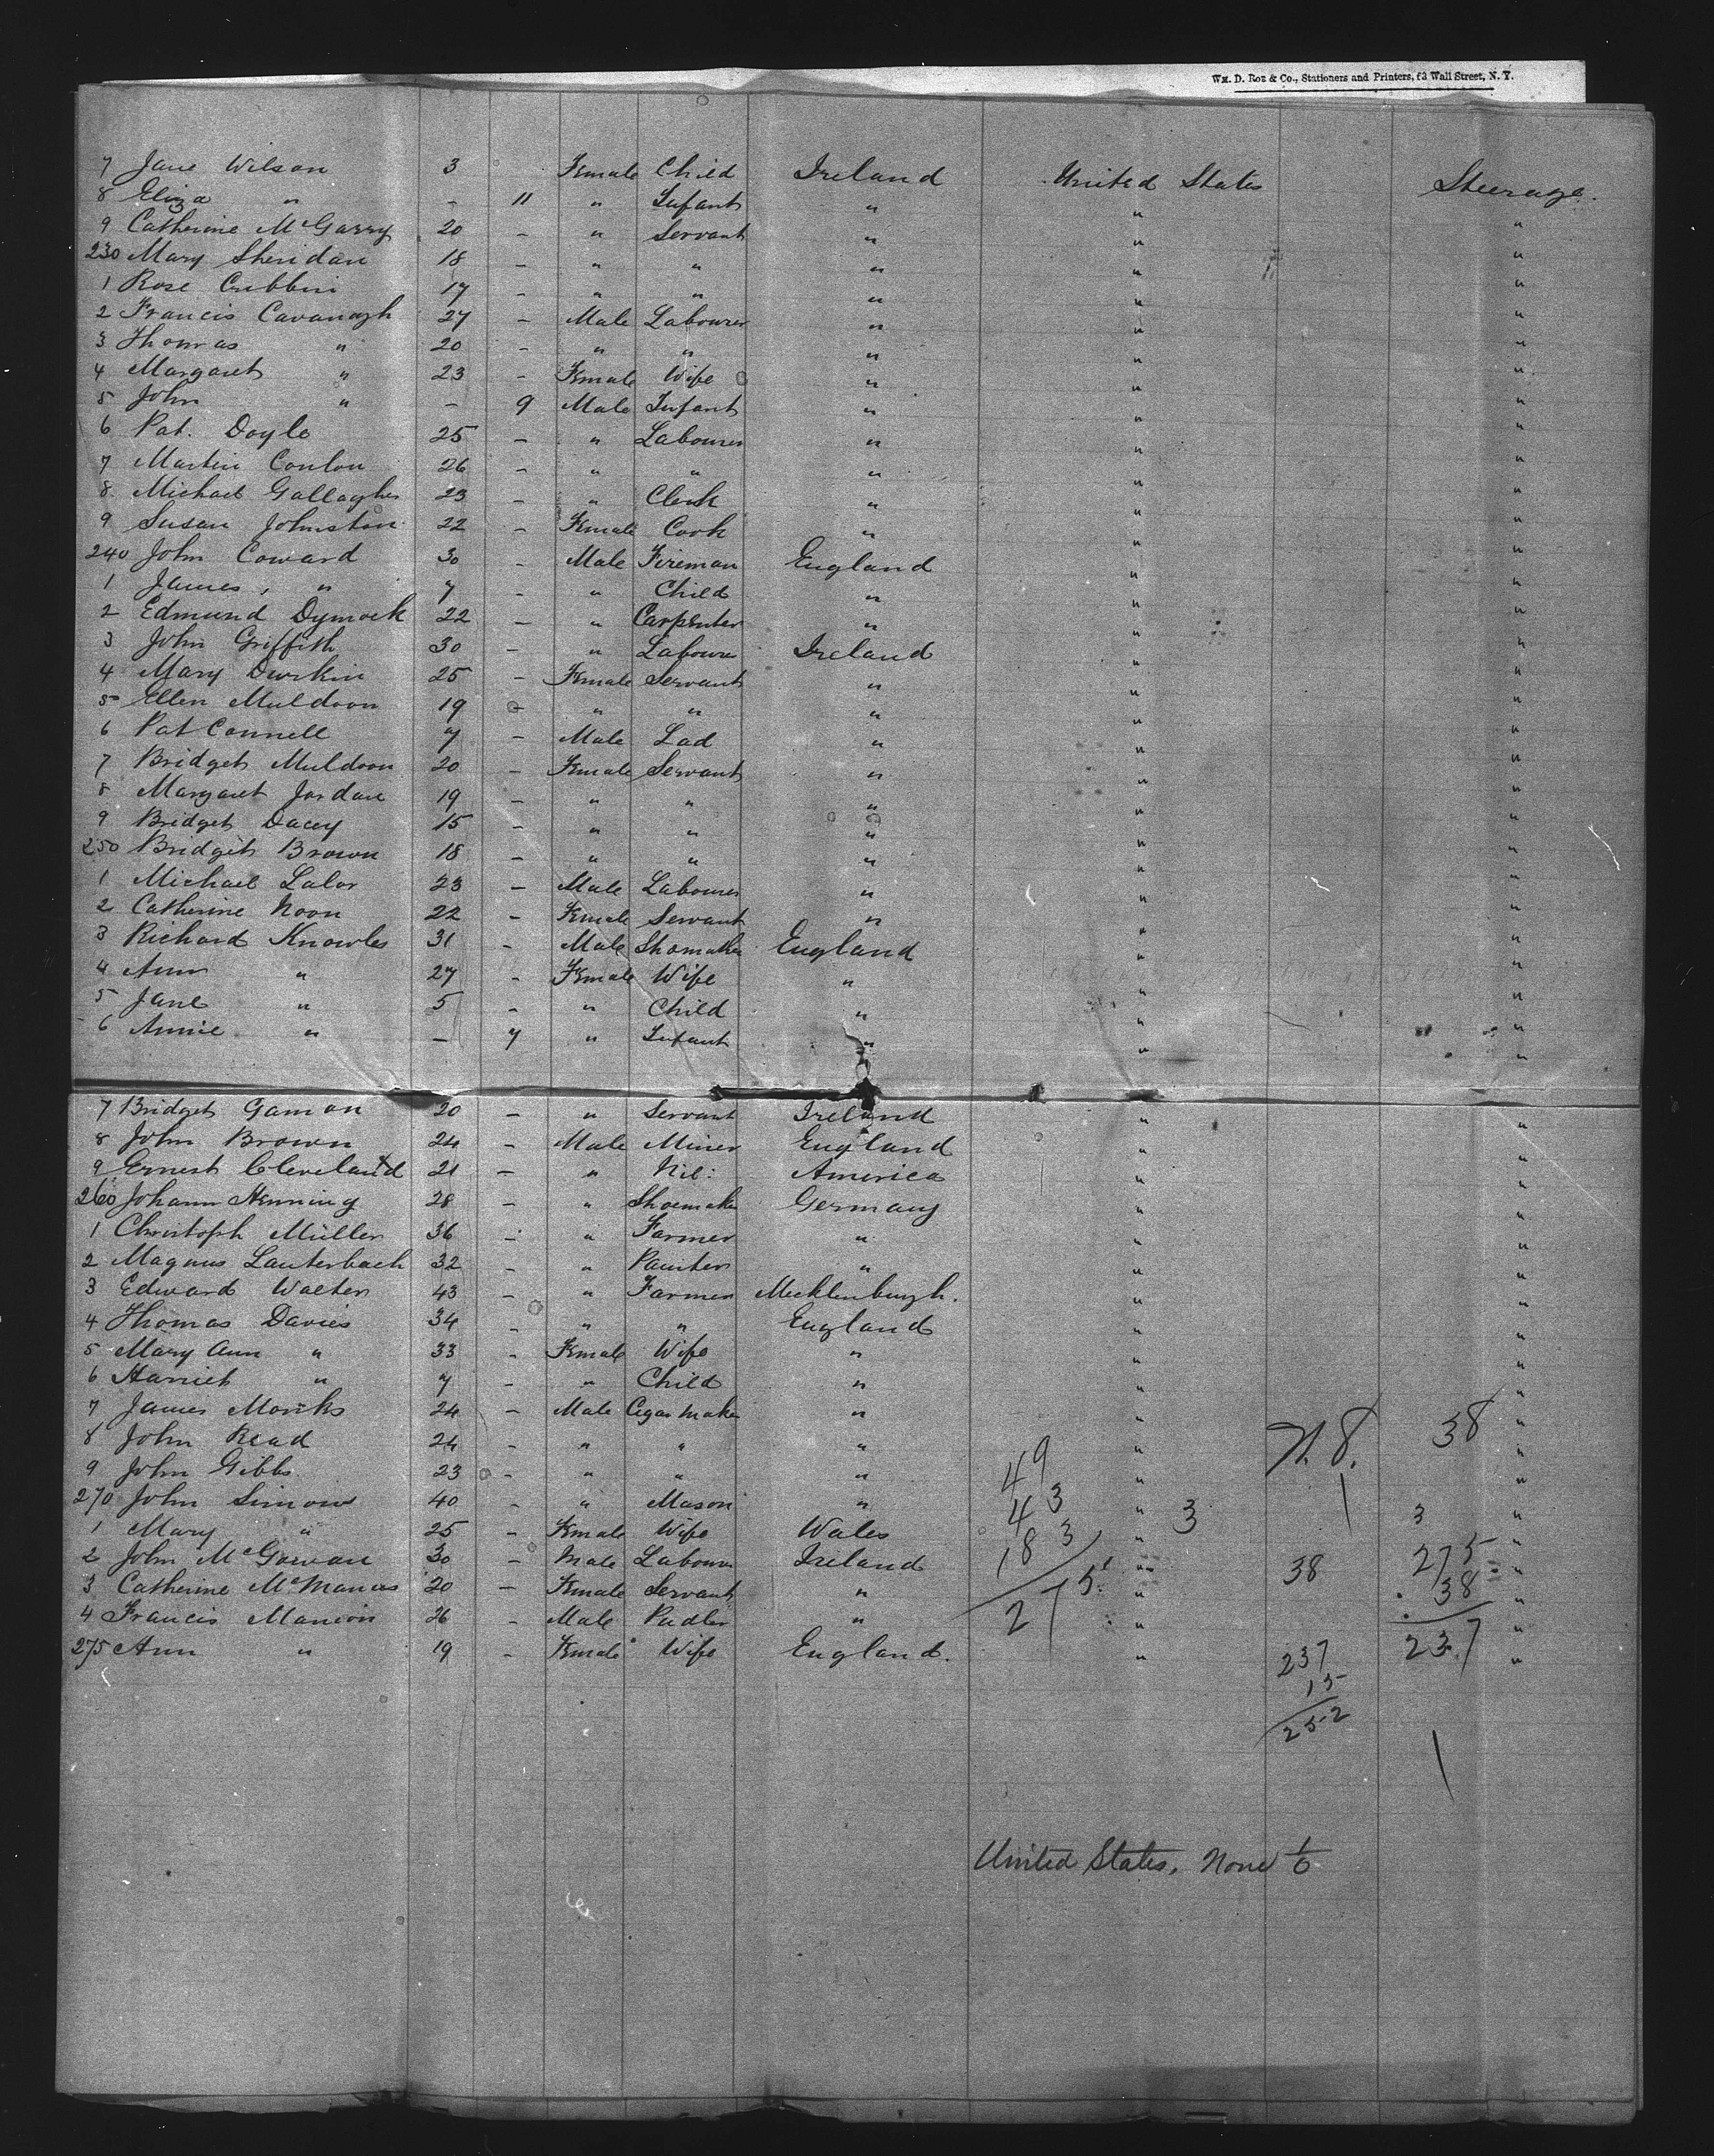 Wm. D. Roe & Co., Stationers and Printers, 63 Wall Street, N. Y.
7 Jane Wilson 3 Female Child Ireland United States Steerage.
8 Eliza " - 11 " Infant " " "
9 Catherine McGarry 20 - " Servant " " "
230 Mary Sheridan 18 - " " " " "
1 Rose Cribbin 17 - " " " " "
2 Francis Cavanagh 27 - Male Labourer " " "
3 Thomas " 20 - " " " " "
4 Margaret " 23 - Female Wife " " "
5 John " - 9 Male Infant " " "
6 Pat. Doyle 25 - " Labourer " " "
7 Martin Conlon 26 - " " " " "
8 Michael Gallagher 23 - " Clerk " " "
9 Susan Johnston 22 - Female Cook " " "
240 John Coward 30 - Male Fireman England " "
1 James, " 7 - " Child " " "
2 Edmund Dymock 22 - " Carpenter " " "
3 John Griffith 30 - " Laboure Ireland " "
4 Mary Durkin 25 - Female Servant " " "
5 Ellen Muldoon 19 - " " " " "
6 Pat Connell 7 - Male Lad " " "
7 Bridget Muldoon 20 - Female Servant " " "
8 Margaret Jordan 19 - " " " " "
9 Bridget Dacey 15 - " " " " "
250 Bridget Brown 18 - " " " " "
1 Michael Lalor 23 - Male Labourer " " "
2 Catherine Noon 22 - Female Servant " " "
3 Richard Knowles 31 - Male Shomaker England " "
4 Ann " 27 - Female Wife " " "
5 Jane " 5 - " Child " " "
6 Annie " - 7 " Infant " " "
7 Bridget Gamon 20 - " Servant Ireland " "
8 John Brown 24 - Male Miner England " "
9 Ernest Cleveland 21 - " Nil: America " "
260 Johann Henning 28 - " Shoemaker Germany " "
1 Christoph Müller 36 - " Farmer " " "
2 Magnus Lauterbach 32 - " Painter " " "
3 Edward Walter 43 - " Farmer Mecklenburgh. " "
4 Thomas Davies 34 - " " England " "
5 Mary Ann " 33 - Female Wife " " "
6 Harriet " 7 - " Child " " "
7 James Monks 24 - Male Cigar Maker " " "
8 John Read 24 - " " " " N. 8. 38 "
9 John Gibbs 23 - " " " 49 " "
270 John Simons 40 - " Mason " 43 " 3 1 3 "
1 Mary " 25 - Female Wife Wales 183 " "
2 John McGowan 30 - Male Labourer Ireland " 38 275 "
3 Catherine McManus 20 - Female Servant " 275 " 38 "
4 Francis Mannion 26 - Male Pudler " " "
275 Ann " 19 - Female Wife England. " 237 237 "
15
252
United States, None